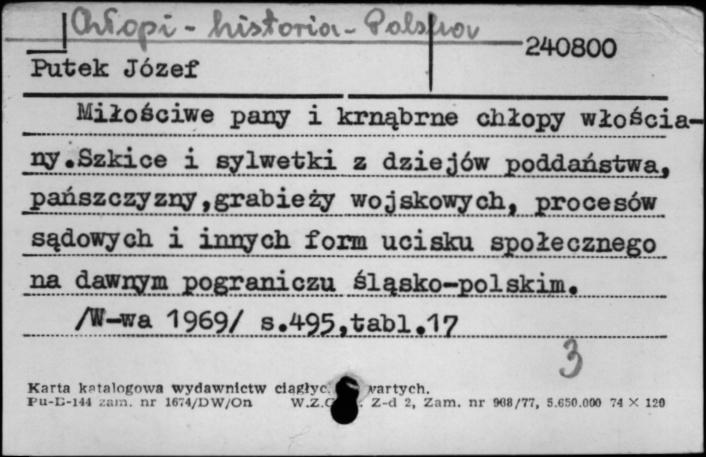 Chłopi - historia - Polska
240800
Putek Józef
Miłościwe pany i krnąbrne chłopy włościa-
ny.Szkice i sylwetki z dziejów poddaństwa,
pańszczyzny,grabieży wojskowych, procesów
sądowych i innych form ucisku społecznego
na dawnym pograniczu śląsko-polskim.
/W-wa 1969/ s.495,tabl.17
3
Karta katalogowa wydawnictw ciągłyc. wartych.
Pu-D-144 zam. nr 1674/DW/On W.Z.G. Z-d 2, Zam. nr 968/77, 5.650.000 74 X 120